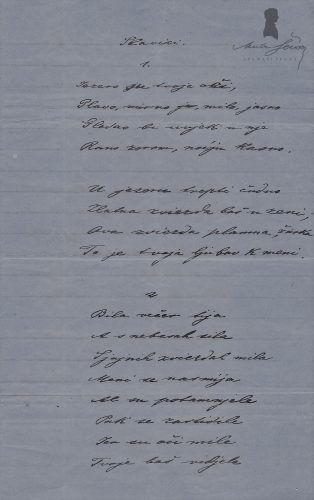 Plavici.
1.
je tvoje
Plavo, mirno je, milo, jasno
Gledao bi uvjek u nje
Rano zorom, noćju kasno.
U jezeru trepti čudno
Zlatna zviezda baš u zeni,
Ova zviezda plamna, žarka
To je tvoja ljubav k meni.
2
Bila večer tija
A s nebesah sila
Sjajnih zviezdah mila
Meni se nasmija
Al su potamnjele
Pak se zastidile
Jer su oči mile
Tvoje baš vidjele